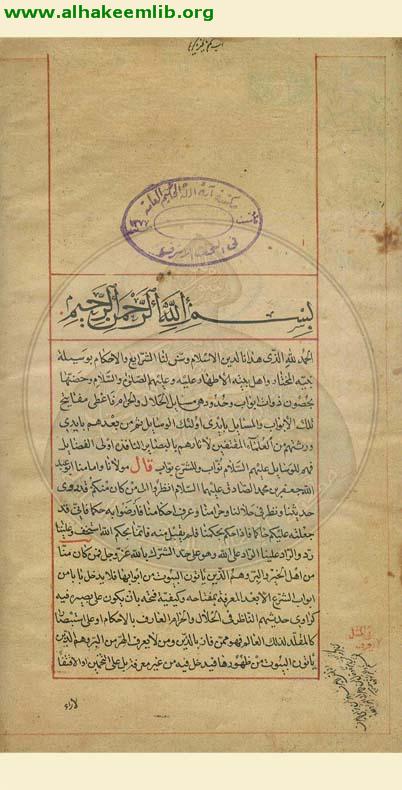 www.alhakeemlib.org
مكتبة آية الله الحكيم العامة
بسم الله الرحمن الرحيم
الحمد لله الذي هدانا لدين الاسلام وسن لنا الشرايع والاحكام بوسيلة
نبيه المختار واهل بيته الاطهار عليه وعليهم الصلوة والسلام وحصنها
بحصون ذوات ابواب وحدود هي مسايل الحلال والحرام فاعطى مفاتيح
تلك الابواب والمسايل بايدي اولئك الوسايل ثم من بعدهم بايدي
ورثتهم من العلماء المقتفين لاثارهم بالبصاير الناقدة اولى الفضايل
فهم للوسايل عليهم السلام نواب وللشرع بواب قال مولانا وامامنا ابو عبد
الله جعفر بن محمد الصادق عليهما السلام انظروا الى من كان منكم قد روى
حديثنا ونظر في حلالنا وحرامنا وعرف احكامنا فارضوا به حكما فاني قد
جعلته عليكم حاكما فاذا حكم بحكمنا فلم يقبل منه فانما بحكم الله استخف وعلينا
رد والراد علينا الراد على الله وهو على حد الشرك بالله عز وجل فمن كان منا
من اهل الخبر والبر وهم الذين ياتون البيوت من ابوابها فلا يدخل بابا من
ابواب الشرع الا بعد المعرفة بمفتاحه وكيفية فتحه بان يكون على بصيرة فيه
كراوي حديثهم الناظر في الحلال والحرام العارف بالاحكام او على استبصار
كالمقلد لذلك العالم فهو ممن فان بالدين ومن لا يعرف الهر من البر وهم الذين
ياتون البيوت من ظهورها فيدخل فيه من غير معرفة بل على التخمين او الاقتفا
لاراء